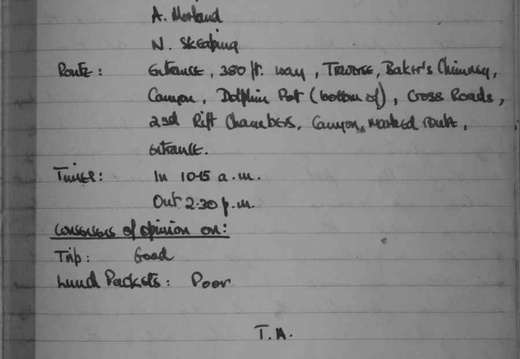 A. Morland
N. Skeaping
Route: Entrance, 380 ft. way, Traverse, Baker's Chimney,
Canyon, Dolphin Pot (bottom of), Cross Roads,
2nd Rift Chambers, Canyon, marked route,
entrance.
Times: In 10.15 a.m.
Out 2.30 p.m.
Consensus of opinion on:
Trip: Good
Lunch Packets: Poor
T.A.